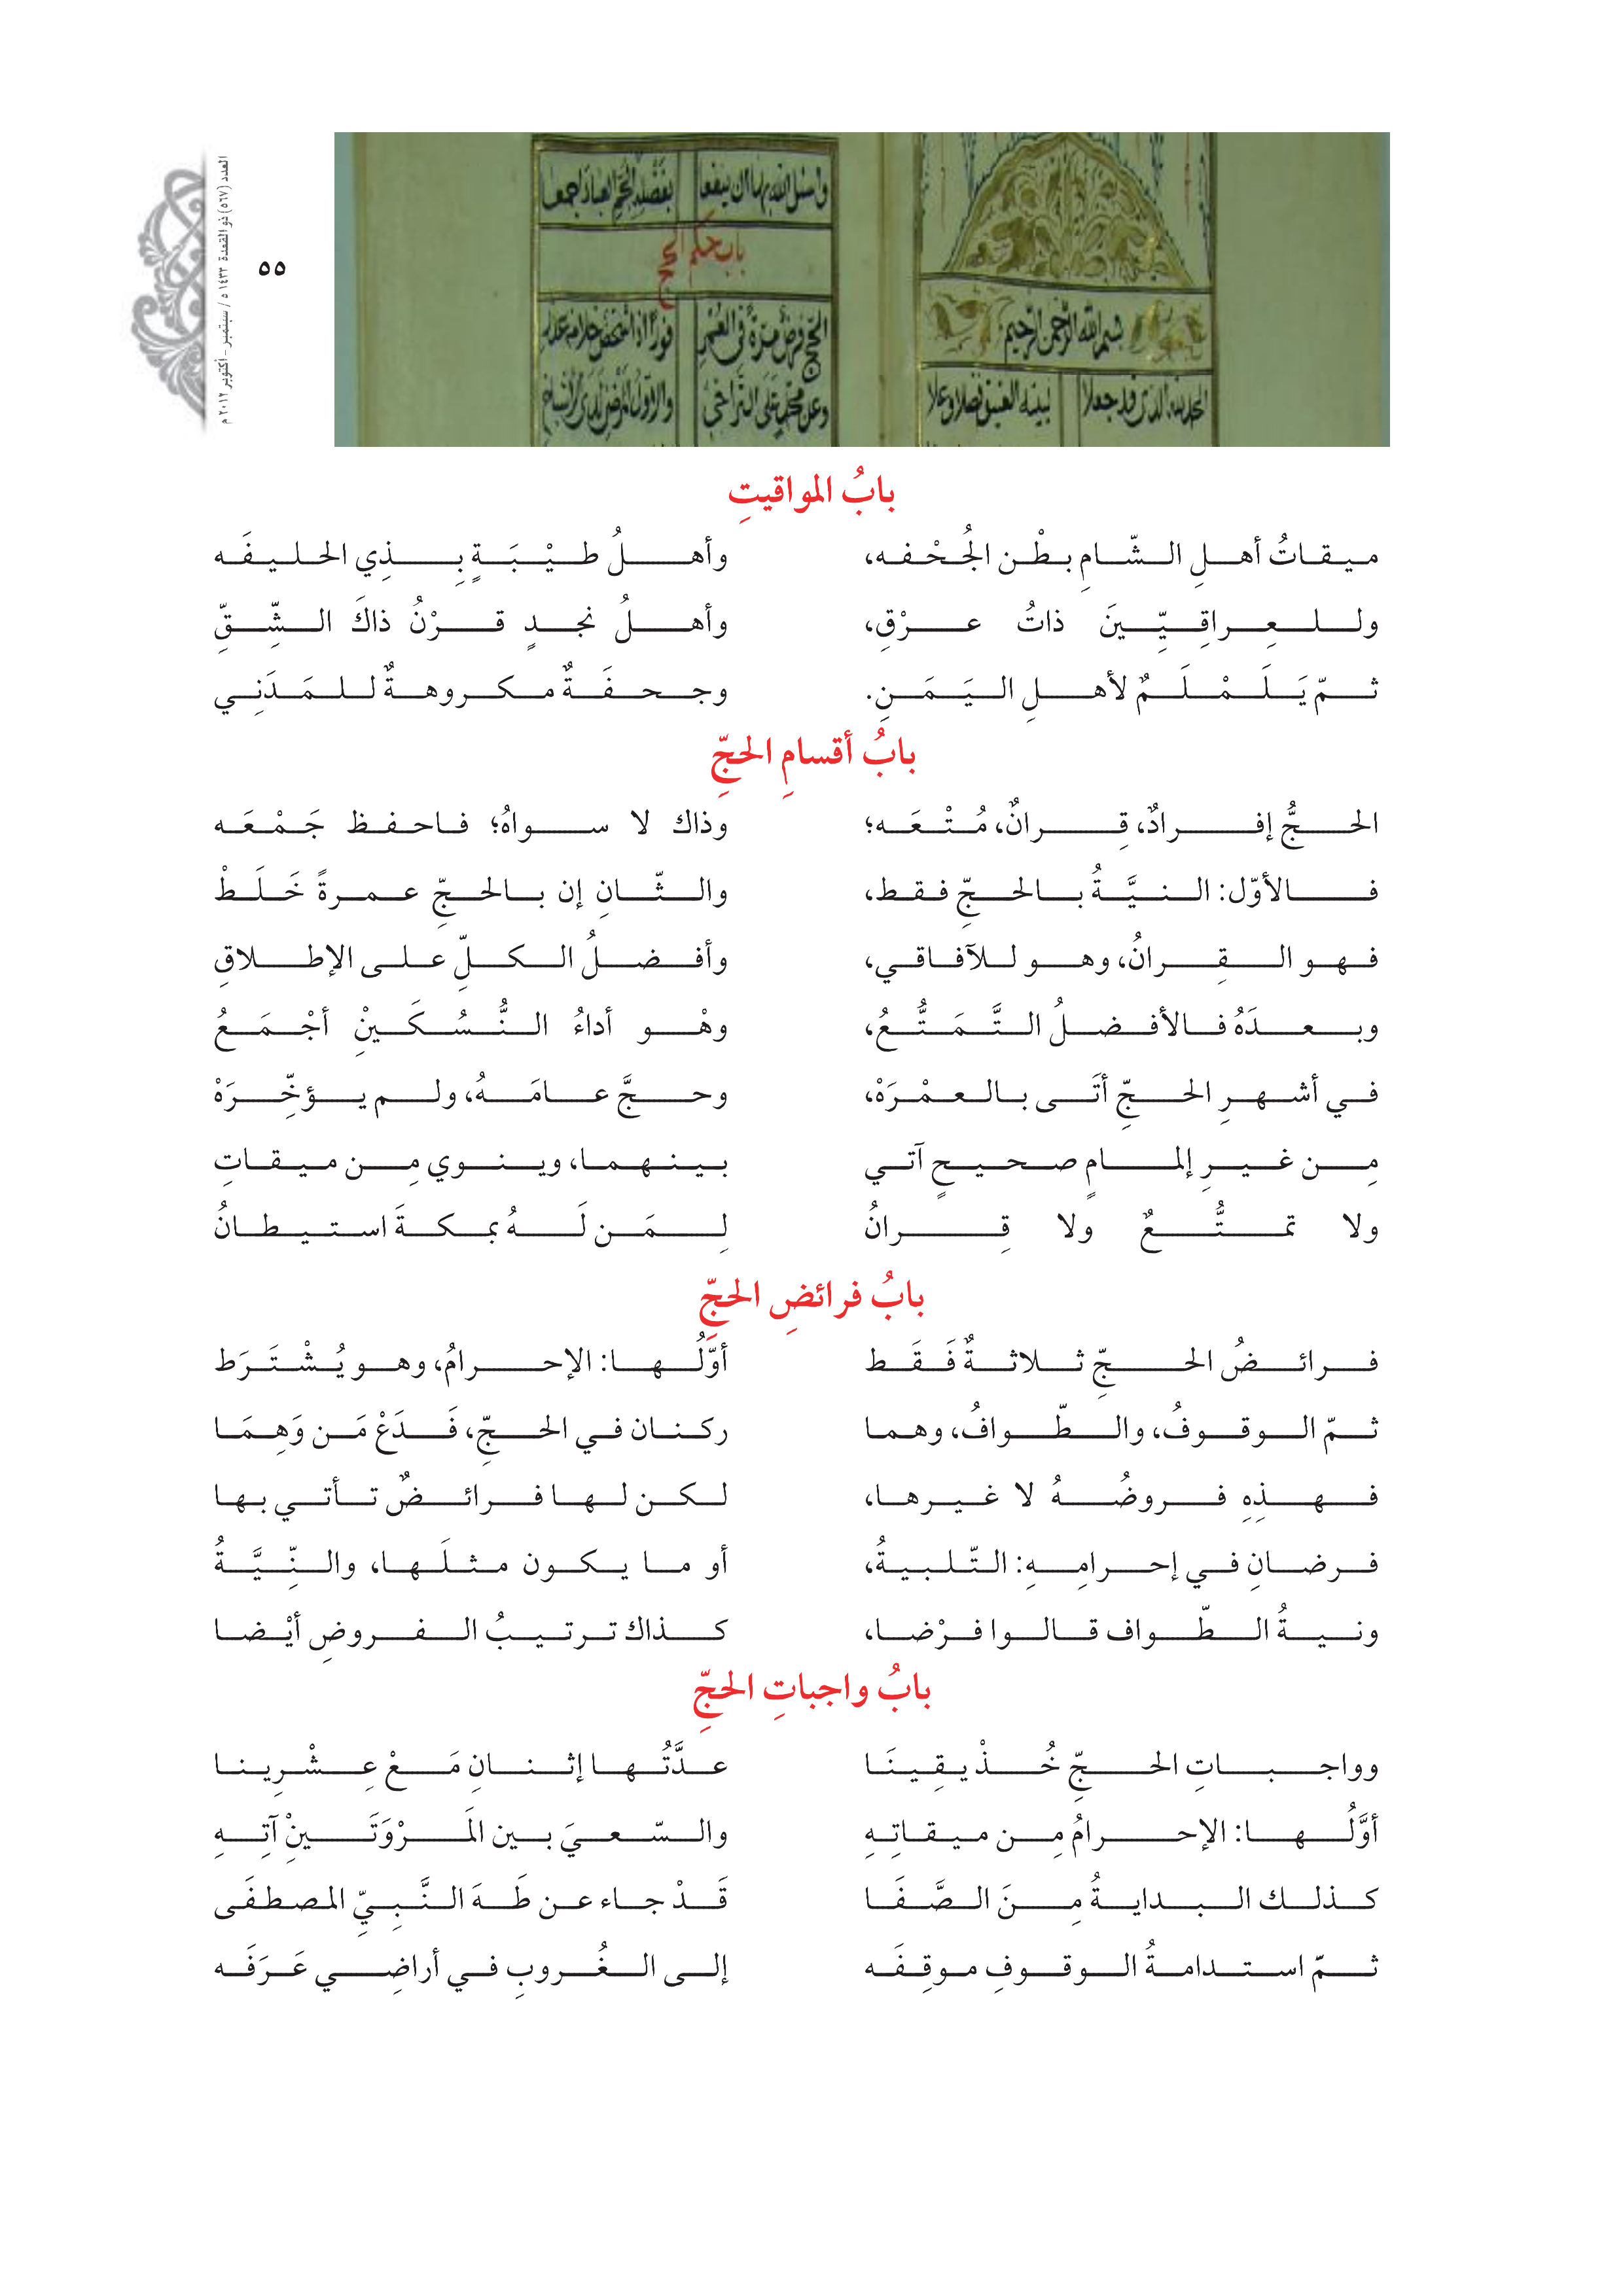 العدد (٥٦٧) ذو القعدة ١٤٣٣ ه / سبتمبر - أكتوبر ٢٠١٢ م
٥٥
بسم الله الرحمن الرحيم
الحمد لله الذي قد جعلا لبيته العتيق فضلا وعلا
واسئل الله بها ان ينفعا بفضله العباد جمعا
باب حكم الحج
الحج فرض مرة في العمر
وعن محمد على التراخي
بابُ المواقيتِ
ميقاتُ أهلِ الشّامِ بطْن الجُحْفه، وأهلُ طيْبَةٍ بِذِي الحليفَه
وللعِراقِيِّينَ ذاتُ عرْقِ، وأهلُ نجدٍ قرْنُ ذاكَ الشِّقِّ
ثمّ يَلَمْلَمٌ لأهلِ اليَمَنِ. وجحفَةٌ مكروهةٌ للمَدَنِي
بابُ أقسامِ الحجِّ
الحجُّ إفرادٌ، قِرانٌ، مُتْعَه؛ وذاك لا سواهُ؛ فاحفظ جَمْعَه
فالأوّل: النيَّةُ بالحجِّ فقط، والثّانِ إن بالحجِّ عمرةً خَلَطْ
فهو القِرانُ، وهو للآفاقي، وأفضلُ الكلِّ على الإطلاقِ
وبعدَهُ فالأفضلُ التَّمَتُّعُ، وهْو أداءُ النُّسُكَينْ أجْمَعُ
في أشهرِ الحجِّ أتَى بالعمْرَهْ، وحجَّ عامَهُ، ولم يؤخِّرَهْ
مِن غيرِ إلمامٍ صحيحٍ آتي بينهما، وينوي مِن ميقاتِ
ولا تمتُّعٌ ولا قِرانُ لِمَن لَهُ بمكةَ استيطانُ
بابُ فرائضِ الحجِّ
فرائضُ الحجِّ ثلاثةٌ فَقَط أوَّلُها: الإحرامُ، وهو يُشْتَرَط
ثمّ الوقوفُ، والطّوافُ، وهما ركنان في الحجِّ، فَدَعْ مَن وَهِمَا
فهذِهِ فروضُهُ لا غيرها، لكن لها فرائضٌ تأتي بها
فرضانِ في إحرامِهِ: التّلبيةُ، أو ما يكون مثلَها، والنِّيَّةُ
ونيةُ الطّواف قالوا فرْضا، كذاك ترتيبُ الفروضِ أيْضا
بابُ واجباتِ الحجِّ
وواجباتِ الحجِّ خُذْ يقِينَا عدَّتُها إثنانِ مَعْ عِشْرِينا
أوَّلُها: الإحرامُ مِن ميقاتِهِ والسّعيَ بين المَرْوَتَينْ آتِهِ
كذلك البدايةُ مِنَ الصَّفَا قَدْ جاء عن طَهَ النَّبِيِّ المصطفَى
ثمّ استدامةُ الوقوفِ موقِفَه إلى الغُروبِ في أراضِي عَرَفَه